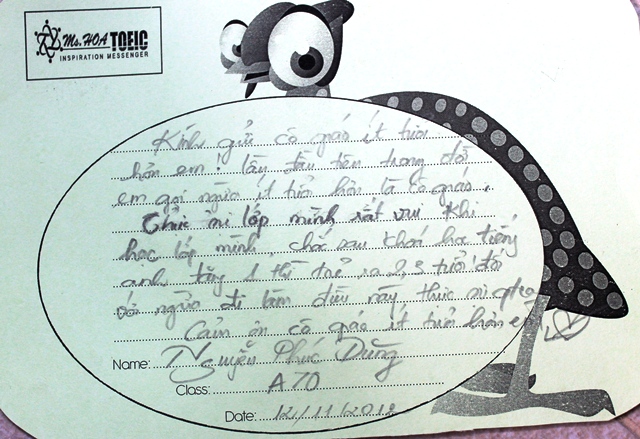 Ms. HOA TOEIC
INSPIRATION MESSENGER
Kính gửi cô giáo ít tuổi
hơn em! lần đầu tiên trong đời
em gọi người ít tuổi hơn là cô giáo.
Thực sự lớp mình rất vui. Khi
học lớp mình, chắc sau khoá học tiếng
anh tăng 1 thì trẻ ra 2, 3 tuổi đối
với người đi làm điều này thực sự
Cảm ơn cô giáo ít tuổi hơn em
Name: Nguyễn Phúc Dũng
Class: A70
Date: 12/11/2012